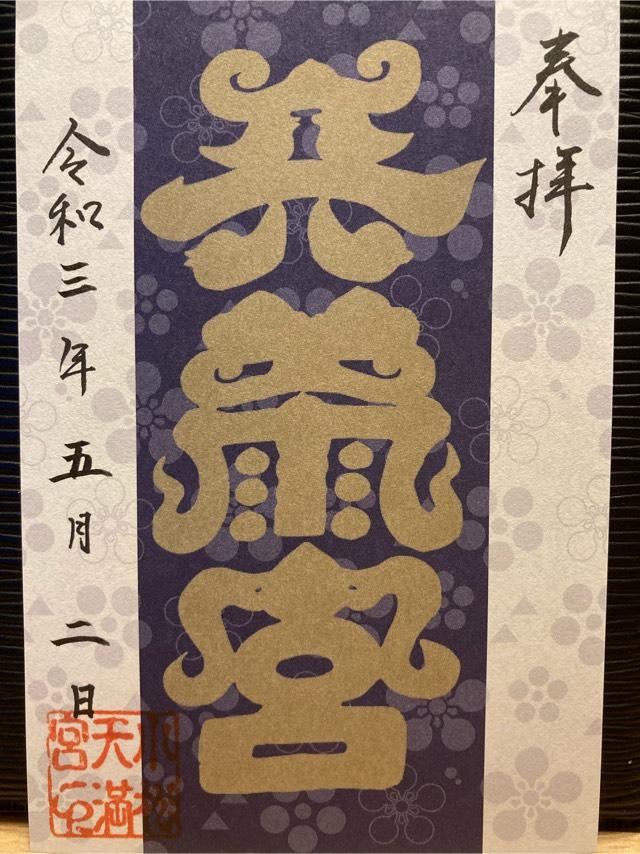 奉拝
天満宮
令和三年五月二日
小松
天満
宮印